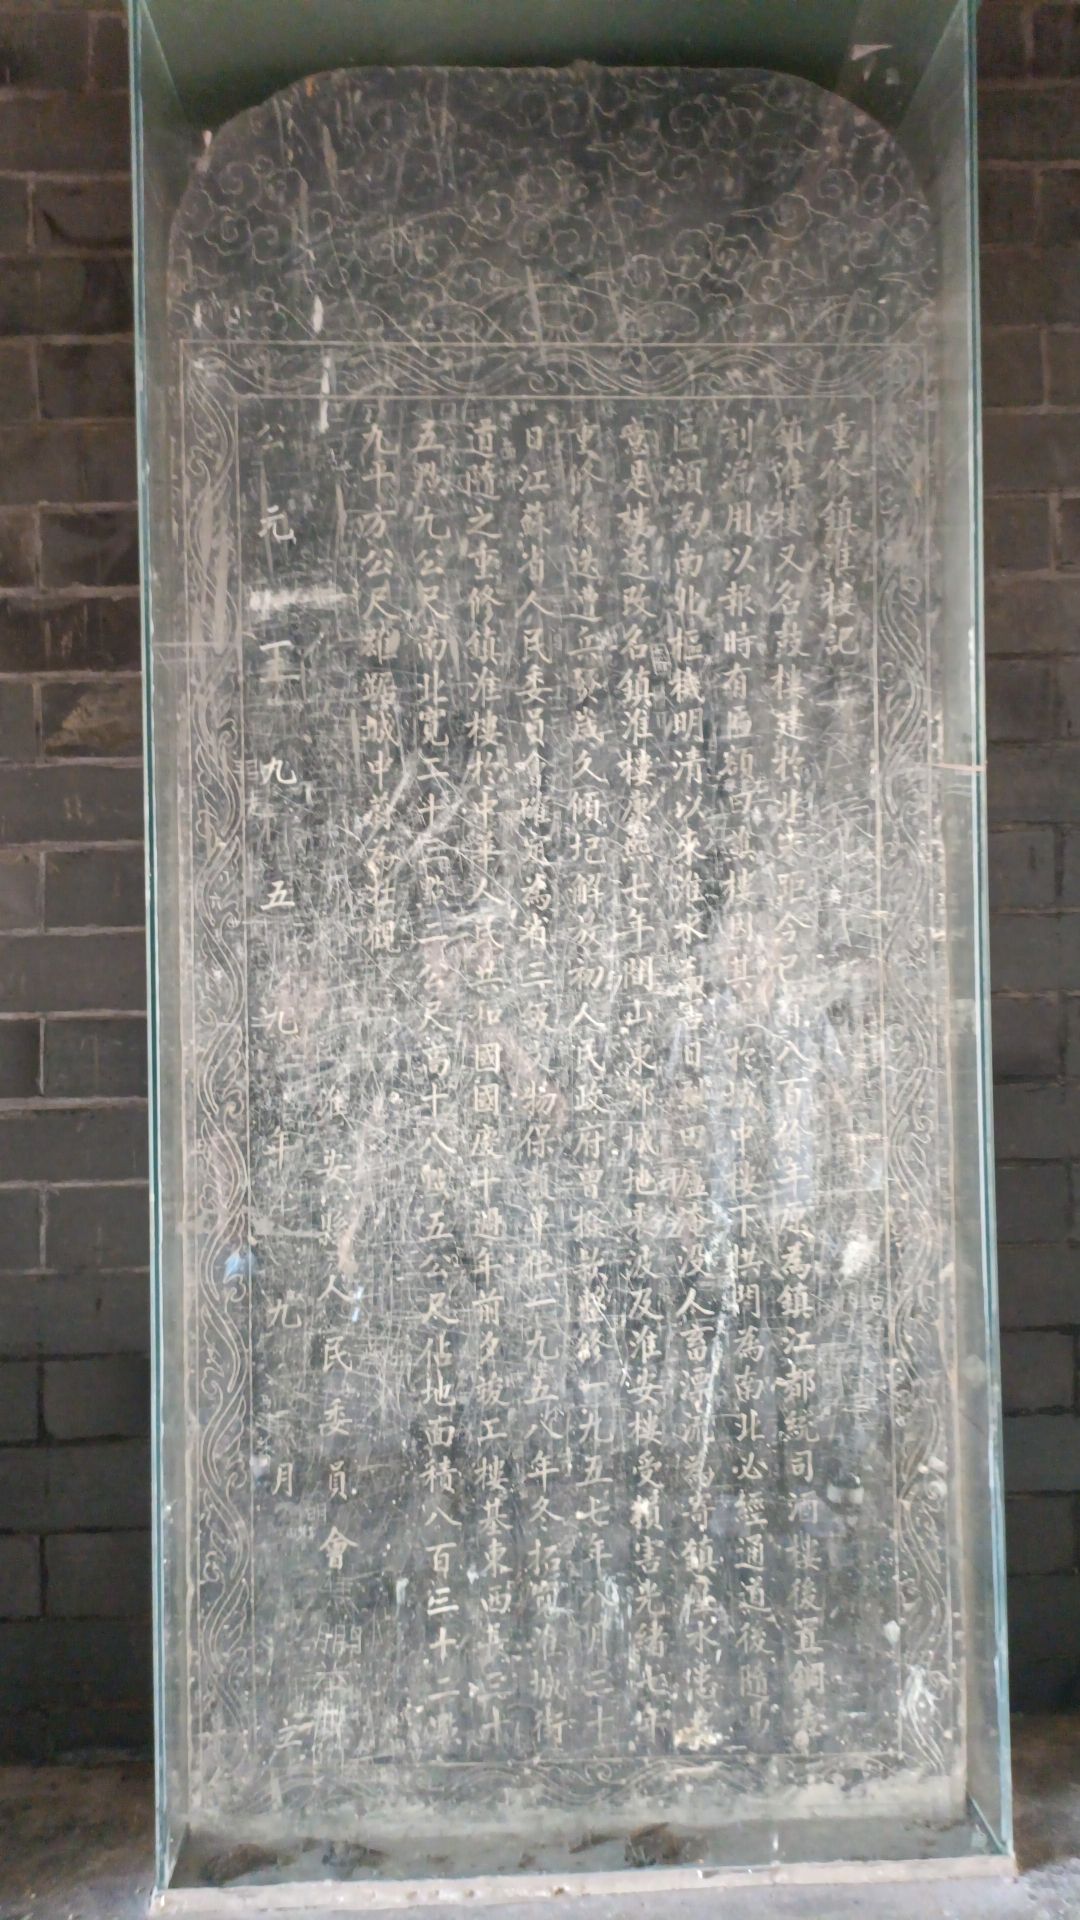 重修鎮淮樓記
鎮淮樓又名鼓樓建於北宋距今已有八百餘年原為鎮江都統司酒樓後置銅壺
刻漏用以報時有匾額譙樓因其於城中樓下拱門為南北必經通道後隨易
匾額為南北樞機明清以來淮水為害日劇田廬淹没人畜漂流為寄鎮壓水患之
意是樓遂改名鎮淮樓康熙七年間山東郯城地震波及淮安樓受損害光緒七年
重修後迭遭兵燹歲久傾圮解放初人民政府曾撿新整修一九五七年八月三十
日江蘇省人民委員會確定為省三級文物保護單位一九五八年冬拓寬淮城街
道隨之重修鎮淮樓於中華人民共和國國慶十週年前夕竣工樓基東西長三十
五點九公尺南北寬二十點二公尺高十八點五公尺佔地面積八百三十二點
九平方公尺雄踞城中蔚為壯觀
淮安縣人民委員會
公元一九五九年九月